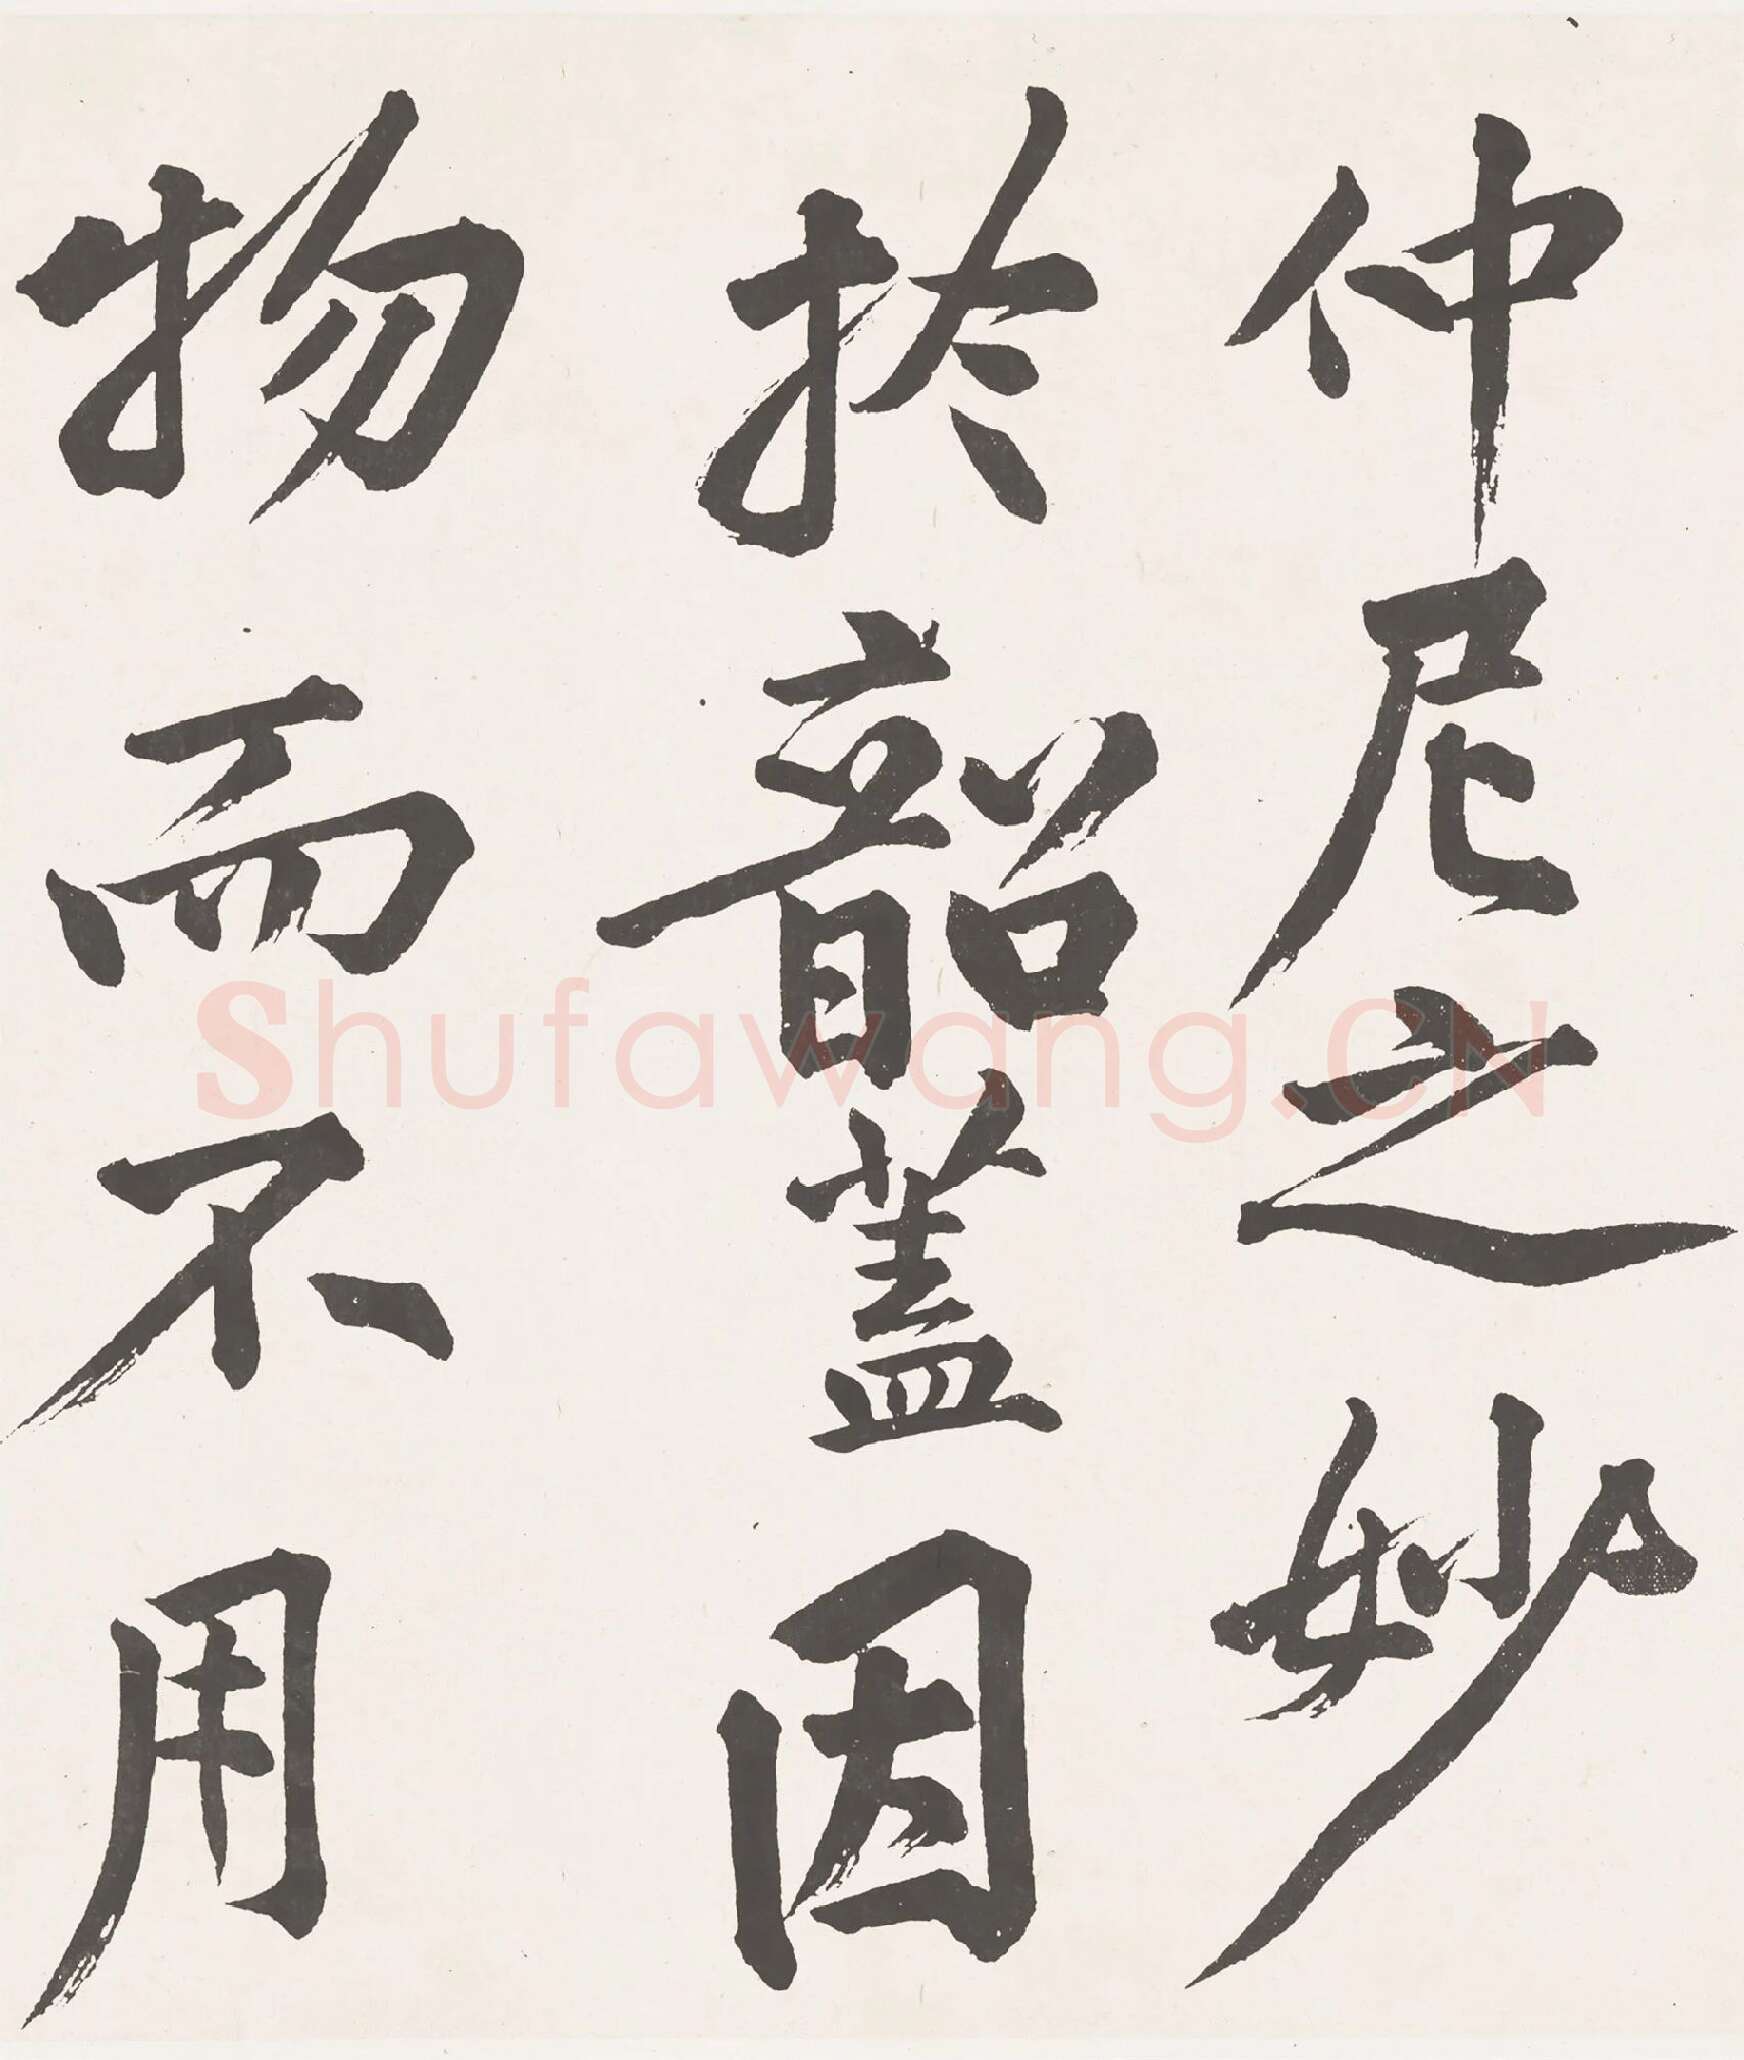 仲尼之妙
於韶蓋因
物而不用
Shufawang.CN